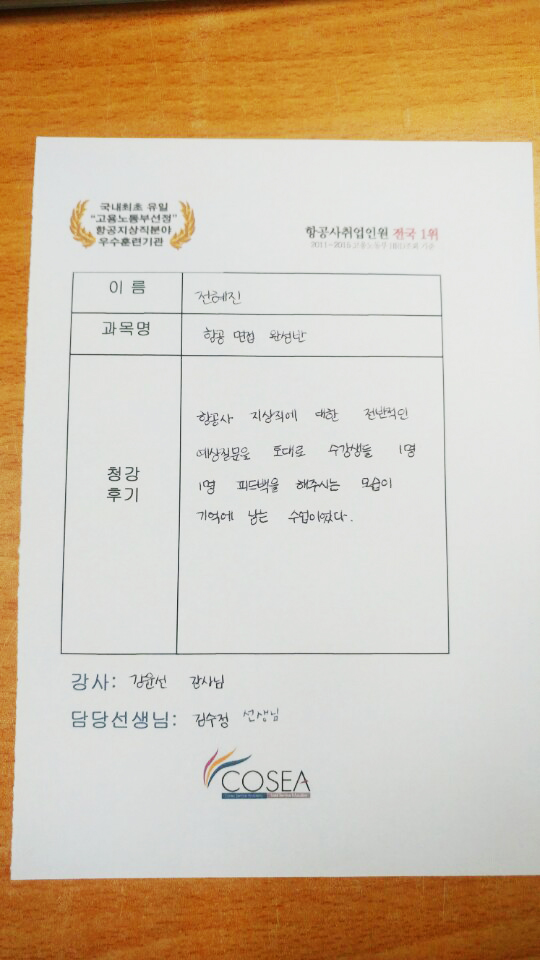 국내최초 유일
"고용노동부선정"
항공지상직분야
우수훈련기관
항공사취업인원 전국 1위
이 름
전혜진
과목명
항공 면접 완성반
청강
후기
항공사 지상직에 대한 전반적인
예상질문을 토대로 수강생들 1명
1명 피드백을 해주시는 모습이
기억에 남는 수업이었다.
강사: 강윤선 강사님
담당선생님: 김수정 선생님
COSEA